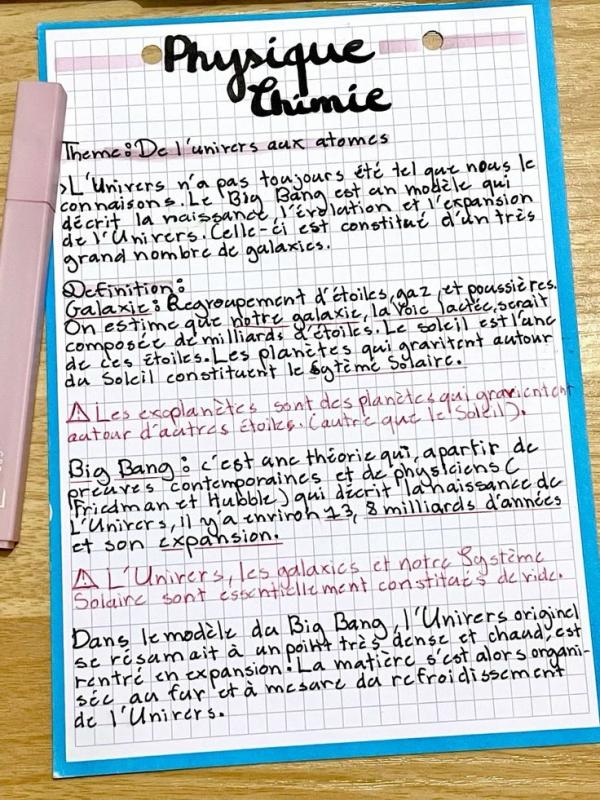 Physique
Chimie
Theme: De l'univers aux atomes
>L'Univers n'a pas toujours été tel que nous le
connaisons. Le Big Bang est un modèle qui
décrit la naissance, l'évolation et l'expansion
de l'Univers. Celle-ci est constitué d'un très
grand nombre de galaxies.
Definition:
Galaxie: Regroupement d'étoiles, gaz et poussières.
On estime que notre galaxie, la voie lactée, serait
composée de milliards d'étoiles. Le soleil est l'une
de ces étoiles. Les planètes qui gravitent autour
du Soleil constituent le Sytème Solaire.
⚠ Les exoplanètes sont des planètes qui gravientent
autour d'autres étoiles. (autre que le Soleil).
Big Bang: c'est une théorie qui, apartir de
preuves contemporaines et de physiciens (
Friedman et Hubble) qui décrit la naissance de
L'Univers, il y'a environ 13, 8 milliards d'années
et son expansion.
⚠ L'Univers, les galaxies et notre Système
Solaire sont essentiellement constitués de vide.
Dans le modèle du Big Bang, l'Univers originel
se résumait à un point très dense et chaud, est
rentré en expansion. La matière s'est alors organi-
sée au fur et à mesure du refroidissement
de l'Univers.